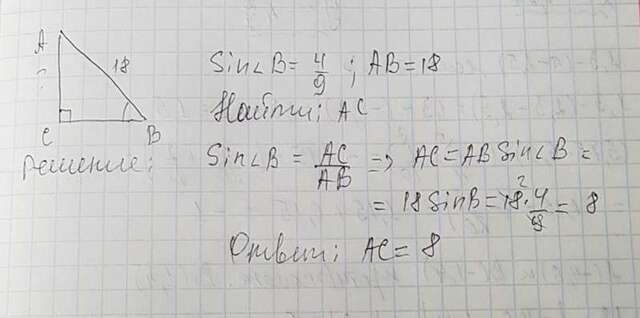 A
18
?
C
B
Sin∠B = 4/9 ; AB = 18
Найти: AC
Решение:
Sin∠B = AC/AB => AC = AB Sin∠B =
= 18 SinB = 18² · 4/9 = 8
Ответ: AC = 8